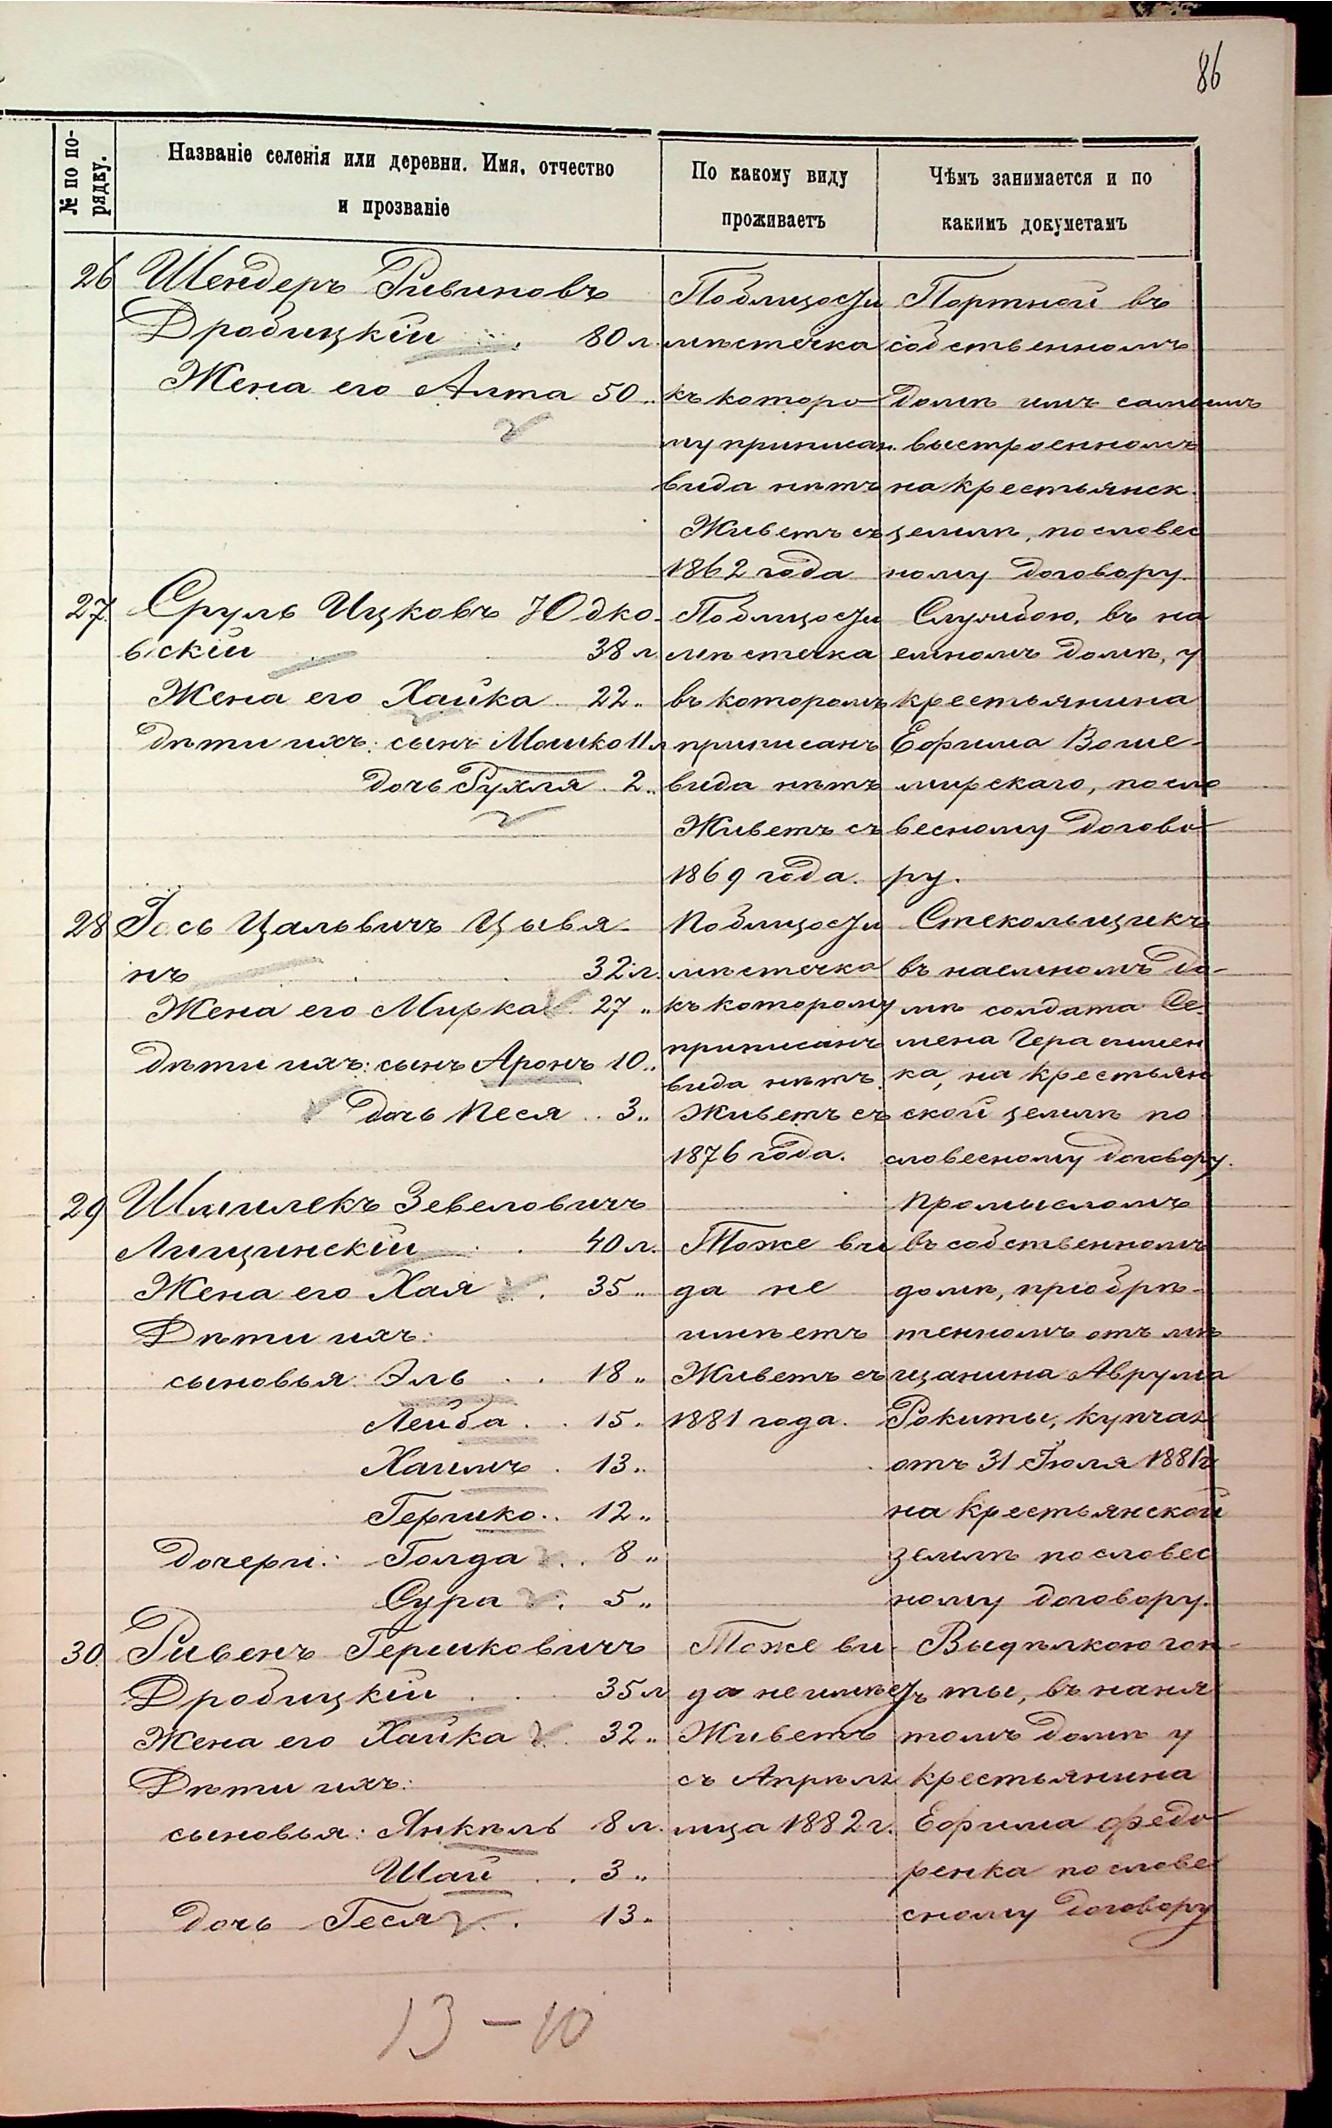 86
№ по по-
рядку.
Названіе селенія или деревни. Имя, отчество
и прозваніе
По какому виду
проживаетъ
Чѣмъ занимается и по
какимъ докуметамъ
26 Шендеръ Рывиновъ
Дробицкій 80 л.
Жена его Алта 50 „
Поблизости
мѣстечка
къ которо
му приписан.
вида нѣтъ
Живетъ съ
1862 года
Портной въ
собственномъ
домѣ имъ самимъ
выстроенномъ
на крестьянск.
землѣ, по словес
ному договору.
27 Сруль Ицковъ Юдко-
вскій 38 л.
Жена его Хайка 22 „
дѣти ихъ: сынъ Мошко 11 л
дочь Рухля 2 „
Поблизости
мѣстечка
въ которомъ
приписанъ
вида нѣтъ
Живетъ съ
1869 года.
Службою, въ на
емномъ домѣ, у
крестьянина
Ефима
мирскаго, по сло
весному догово
ру.
28 Іось Цальвичъ Цывя-
нъ 32 л.
Жена его Мирка 27 „
дѣти ихъ: сынъ Аронъ 10 „
дочь Песя 3 „
Поблизости
мѣстечка
къ которому
приписанъ
вида нѣтъ.
Живетъ съ
1876 года.
Стекольщикъ
въ наемномъ до-
мѣ солдата Се-
мена Герасимен
ка, на крестьян
ской землѣ по
словесному договору.
29 Шмилекъ Зевеловичъ
Лищинскій 40 л.
Жена его Хая 35 „
Дѣти ихъ:
сыновья: Эль 18 „
Лейба 15 „
Хаимъ 13 „
Гершко 12 „
дочери: Голда 8 „
Сура 5 „
Тоже ви
да не
имѣетъ
Живетъ съ
1881 года.
Промысломъ
въ собственномъ
домѣ, пріобрѣ-
тенномъ отъ мѣ
щанина Аврума
Рокиты, купчая
отъ 31 Іюля 1881 г
на крестьянской
землѣ по словес
ному договору.
30 Рывенъ Гершковичъ
Дробицкій 35 л
Жена его Хайка 32 „
Дѣти ихъ:
сыновья: Янкель 8 л.
Шай 3 „
дочь Геся 13 „
Тоже ви-
да не имѣетъ
Живетъ
съ Апрѣля
мца 1882 г.
Выдѣлкою гон-
ты, въ наня
томъ домѣ у
крестьянина
Ефима Федо
ренка по слове
сному договору
13 – 10